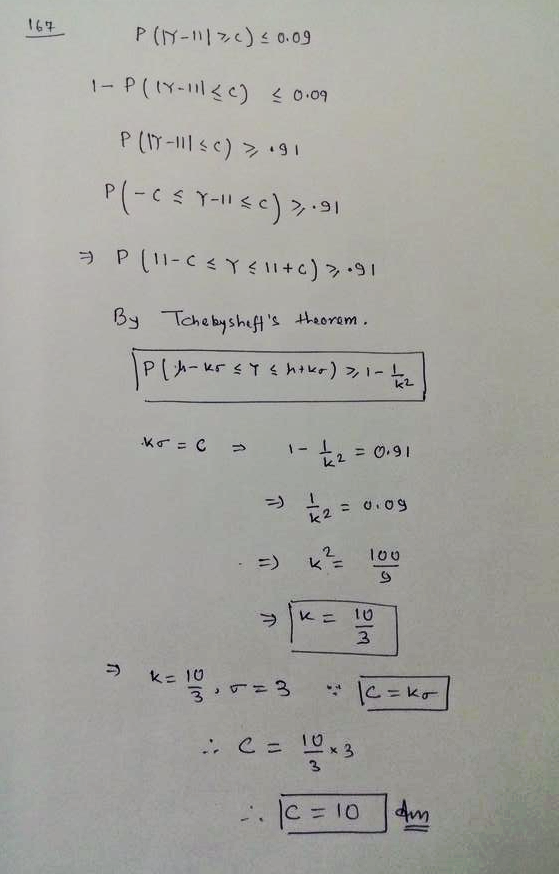 167
P(|Y-11| ⩾ c) ≤ 0.09
1 - P(|Y-11| ≤ c) ≤ 0.09
P(|Y-11| ≤ c) ⩾ .91
P(-c ≤ Y-11 ≤ c) ⩾ .91
⇒ P(11-c ≤ Y ≤ 11+c) ⩾ .91
By Tchebysheff's theorem.
P(μ-kσ ≤ Y ≤ μ+kσ) ⩾ 1 - 1/k²
kσ = c ⇒ 1 - 1/k² = 0.91
⇒ 1/k² = 0.09
⇒ k² = 100/9
⇒ k = 10/3
⇒ k = 10/3, σ = 3 ∵ C = kσ
∴ C = 10/3 × 3
∴ C = 10 Ans